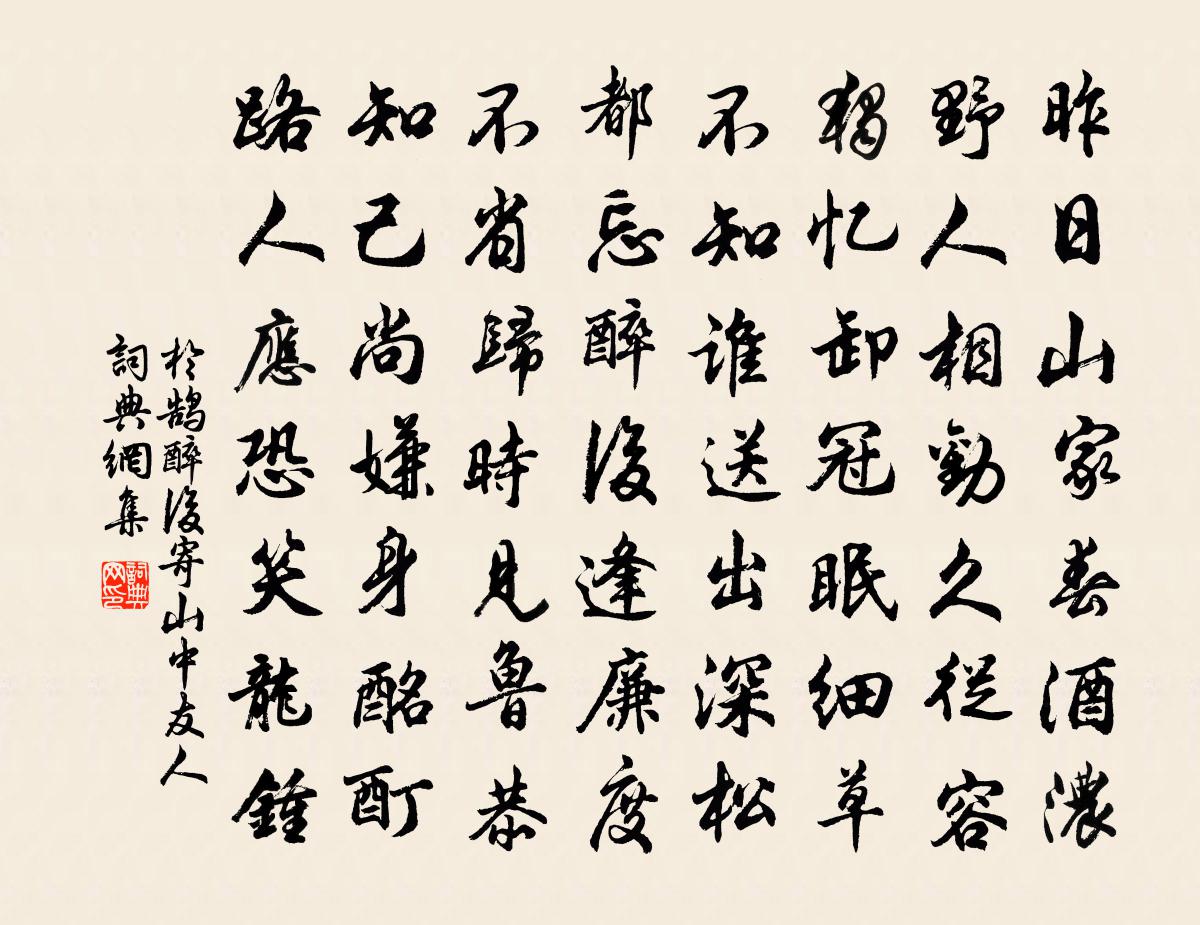 昨日山家春酒濃
野人相勸久從容
獨忆卸冠眠細草
不知誰送出深松
都忘醉後逢廉度
不省歸時見魯恭
知己尚嫌身酩酊
路人應恐笑龍鍾
於鵠醉後寄山中友人
詞典網集
詞典
网印